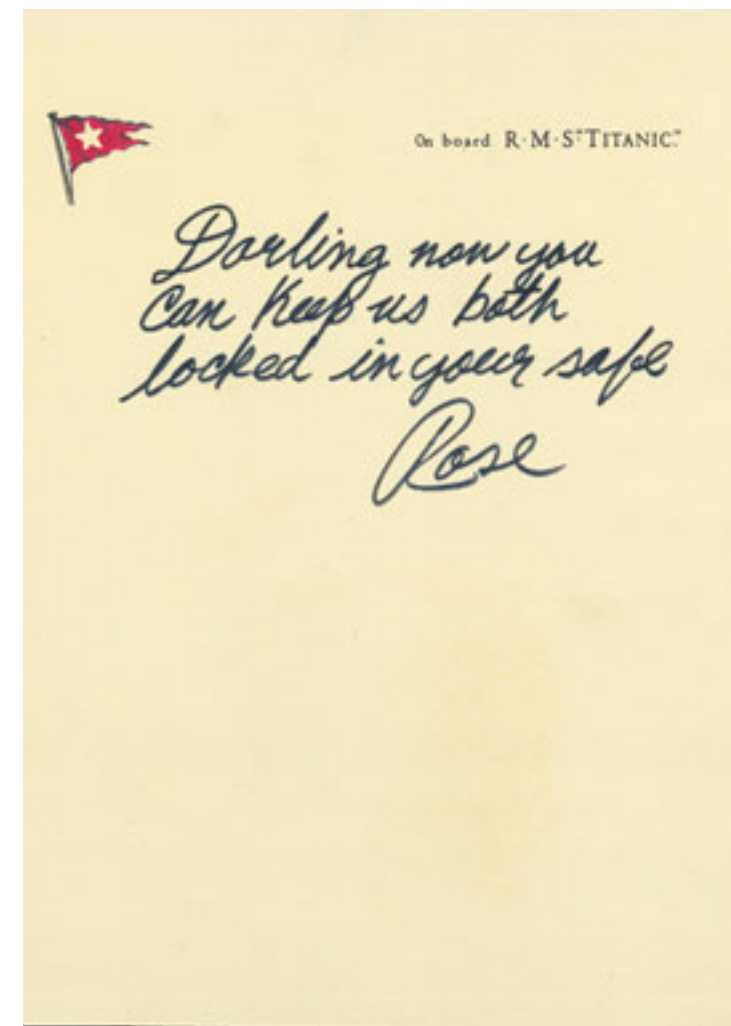 On board R·M·S·"TITANIC."
Darling now you
can keep us both
locked in your safe
Rose